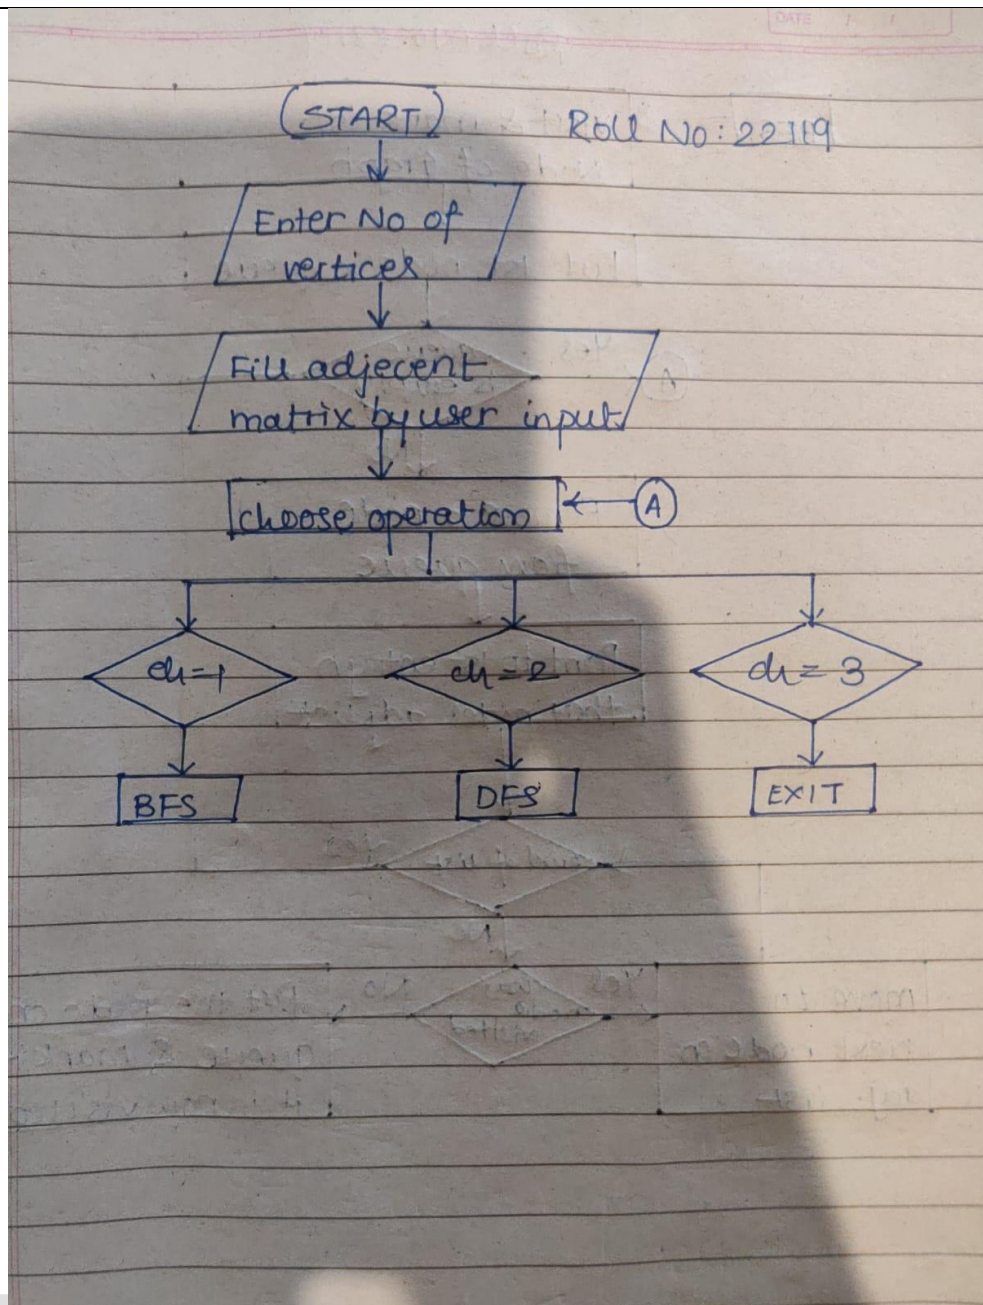 DATE
START
Roll No: 22119
Enter No of
vertices
Fill adjecent
matrix by user input
choose operation
A
ch=1
ch=2
ch=3
BFS
DFS
EXIT